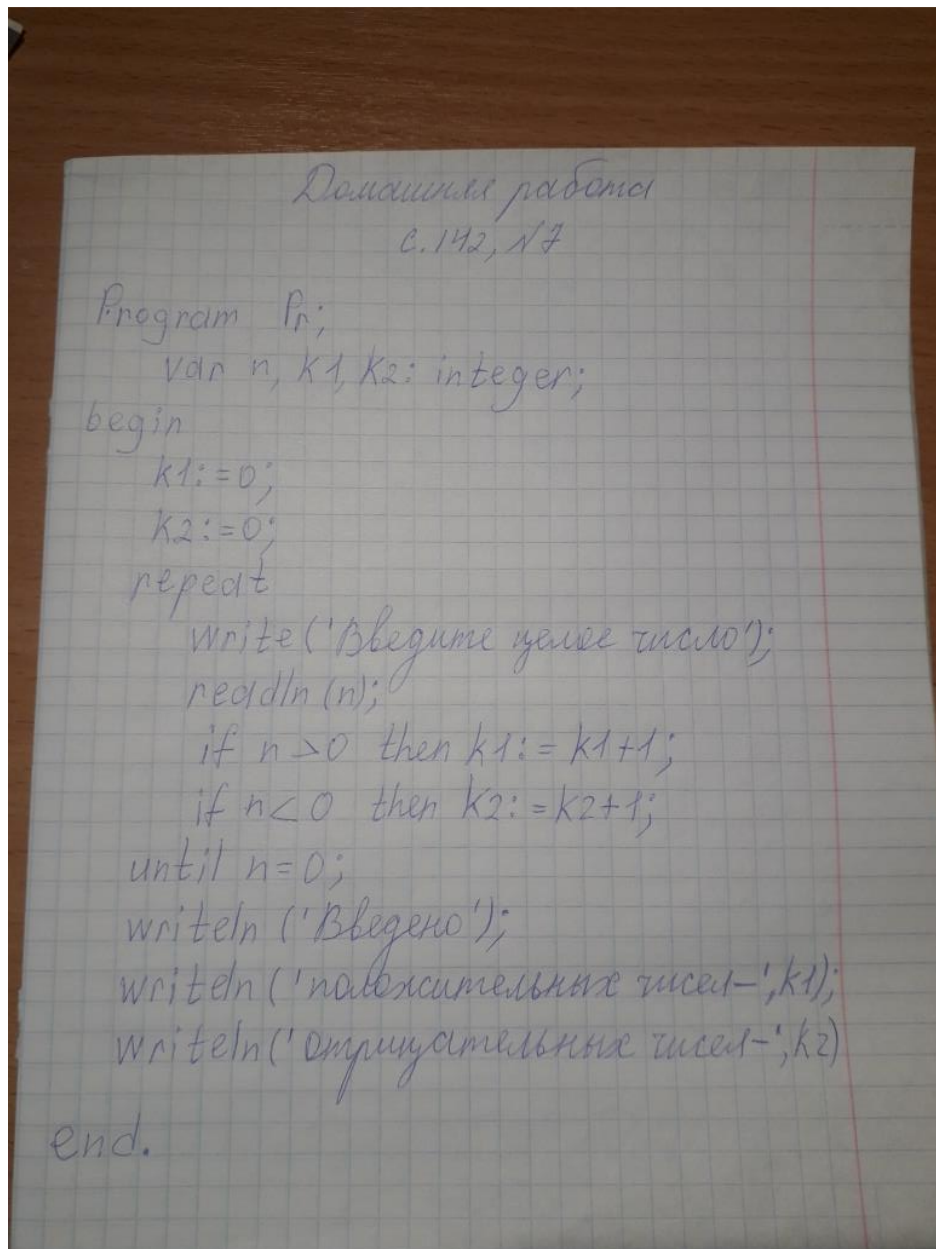 Домашняя работа
с. 142, №7
Program Pr;
var n, k1, k2: integer;
begin
k1:=0;
k2:=0;
repeat
write('Введите целое число');
readln(n);
if n>0 then k1:=k1+1;
if n<0 then k2:=k2+1;
until n=0;
writeln('Введено');
writeln('положительных чисел-',k1);
writeln('отрицательных чисел-',k2)
end.